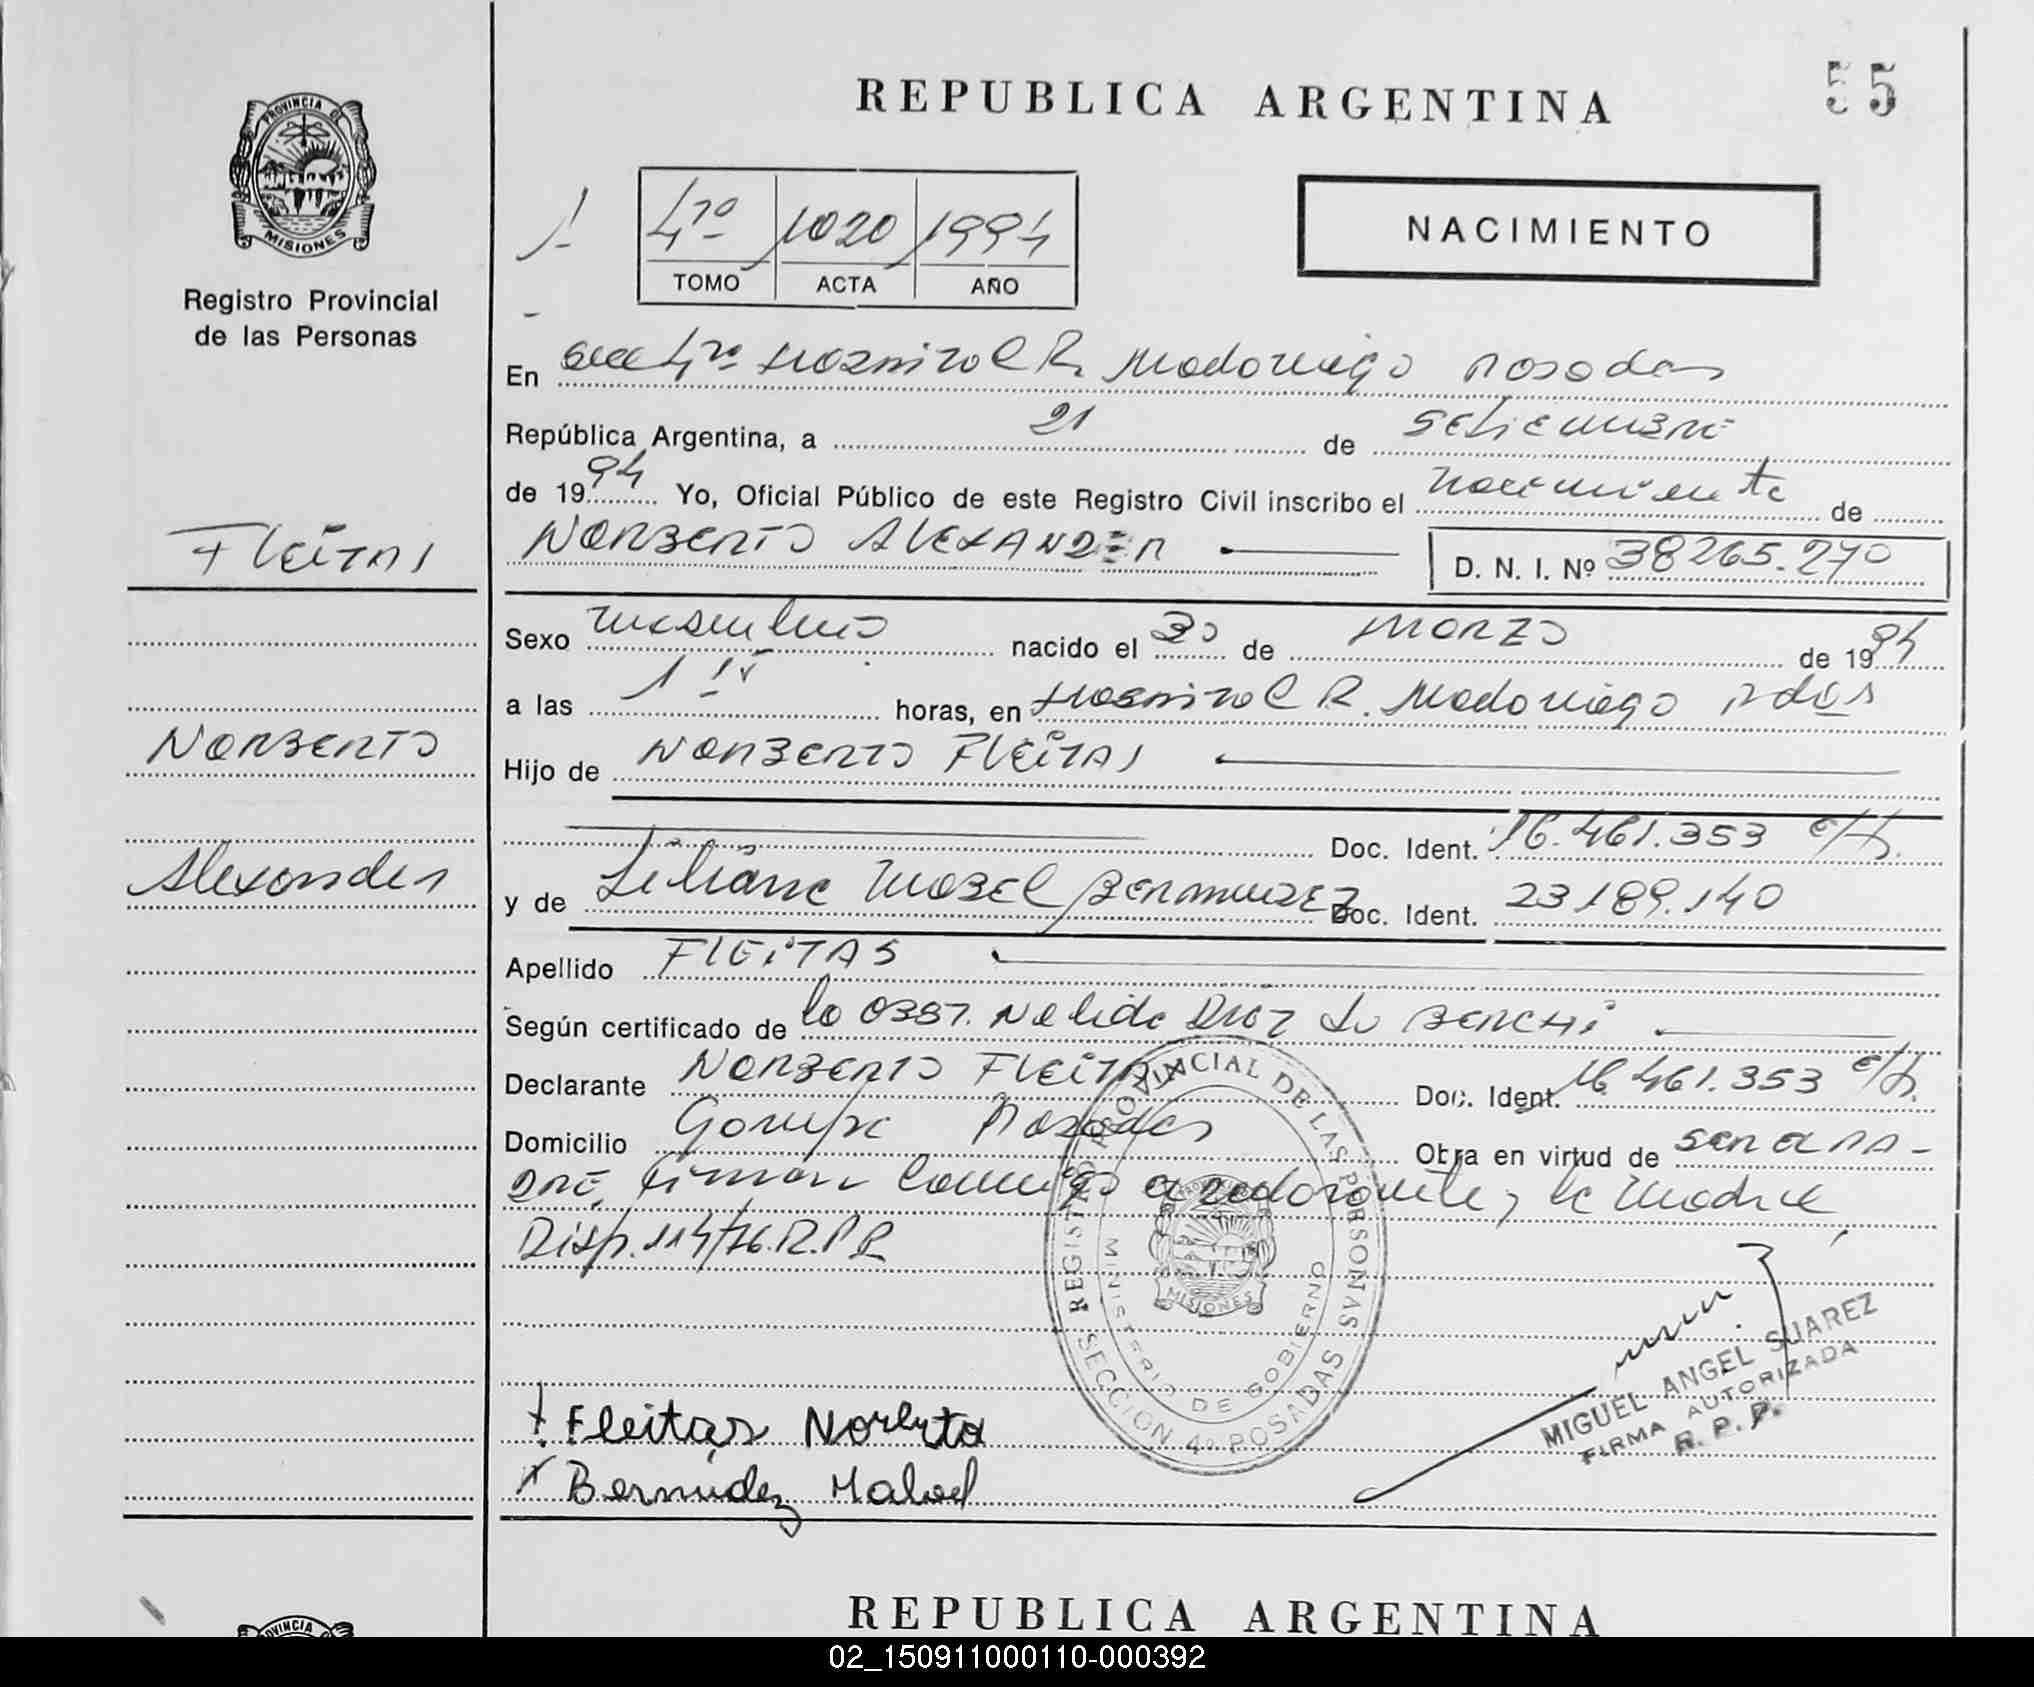 REPUBLICA ARGENTINA
55
PROVINCIA DE
MISIONES
Registro Provincial
de las Personas
4ta 1020 1994
TOMO ACTA AÑO
NACIMIENTO
En 4ta Hospital R. Madariaga Posadas
República Argentina, a 21 de setiembre
de 1994 Yo, Oficial Público de este Registro Civil inscribo el nacimiento de
FLEITAS
NORBERTO ALEXANDER D. N. I. Nº 38265.270
Sexo masculino nacido el 30 de marzo de 1994
a las 1 15 horas, en Hospital R. Madariaga Pdas
NORBERTO
Hijo de NORBERTO FLEITAS
Doc. Ident. 16.461.353
Alexander
y de Liliana Mabel Bermudez Doc. Ident. 23189.140
Apellido FLEITAS
Según certificado de la obst. Nelida Diaz
Declarante NORBERTO FLEITAS Doc. Ident. 16.461.353
Domicilio Garupa Posadas Obra en virtud de ser el pa-
dre, firman conmigo el declarante y la madre
Disp. 114/76.R.P.P
REGISTRO PROVINCIAL DE LAS PERSONAS
MINISTERIO DE GOBIERNO
MISIONES
SECCION 4º POSADAS
MIGUEL ANGEL SUAREZ
FIRMA AUTORIZADA
R. P. P.
Fleitas Norberto
x Bermúdez Mabel
REPUBLICA ARGENTINA
02_150911000110-000392